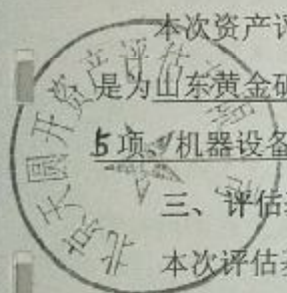 本次资产评
是为山东黄金研
5项、机器设备
三、评估基
本次评估基
北京天圆开资产评估